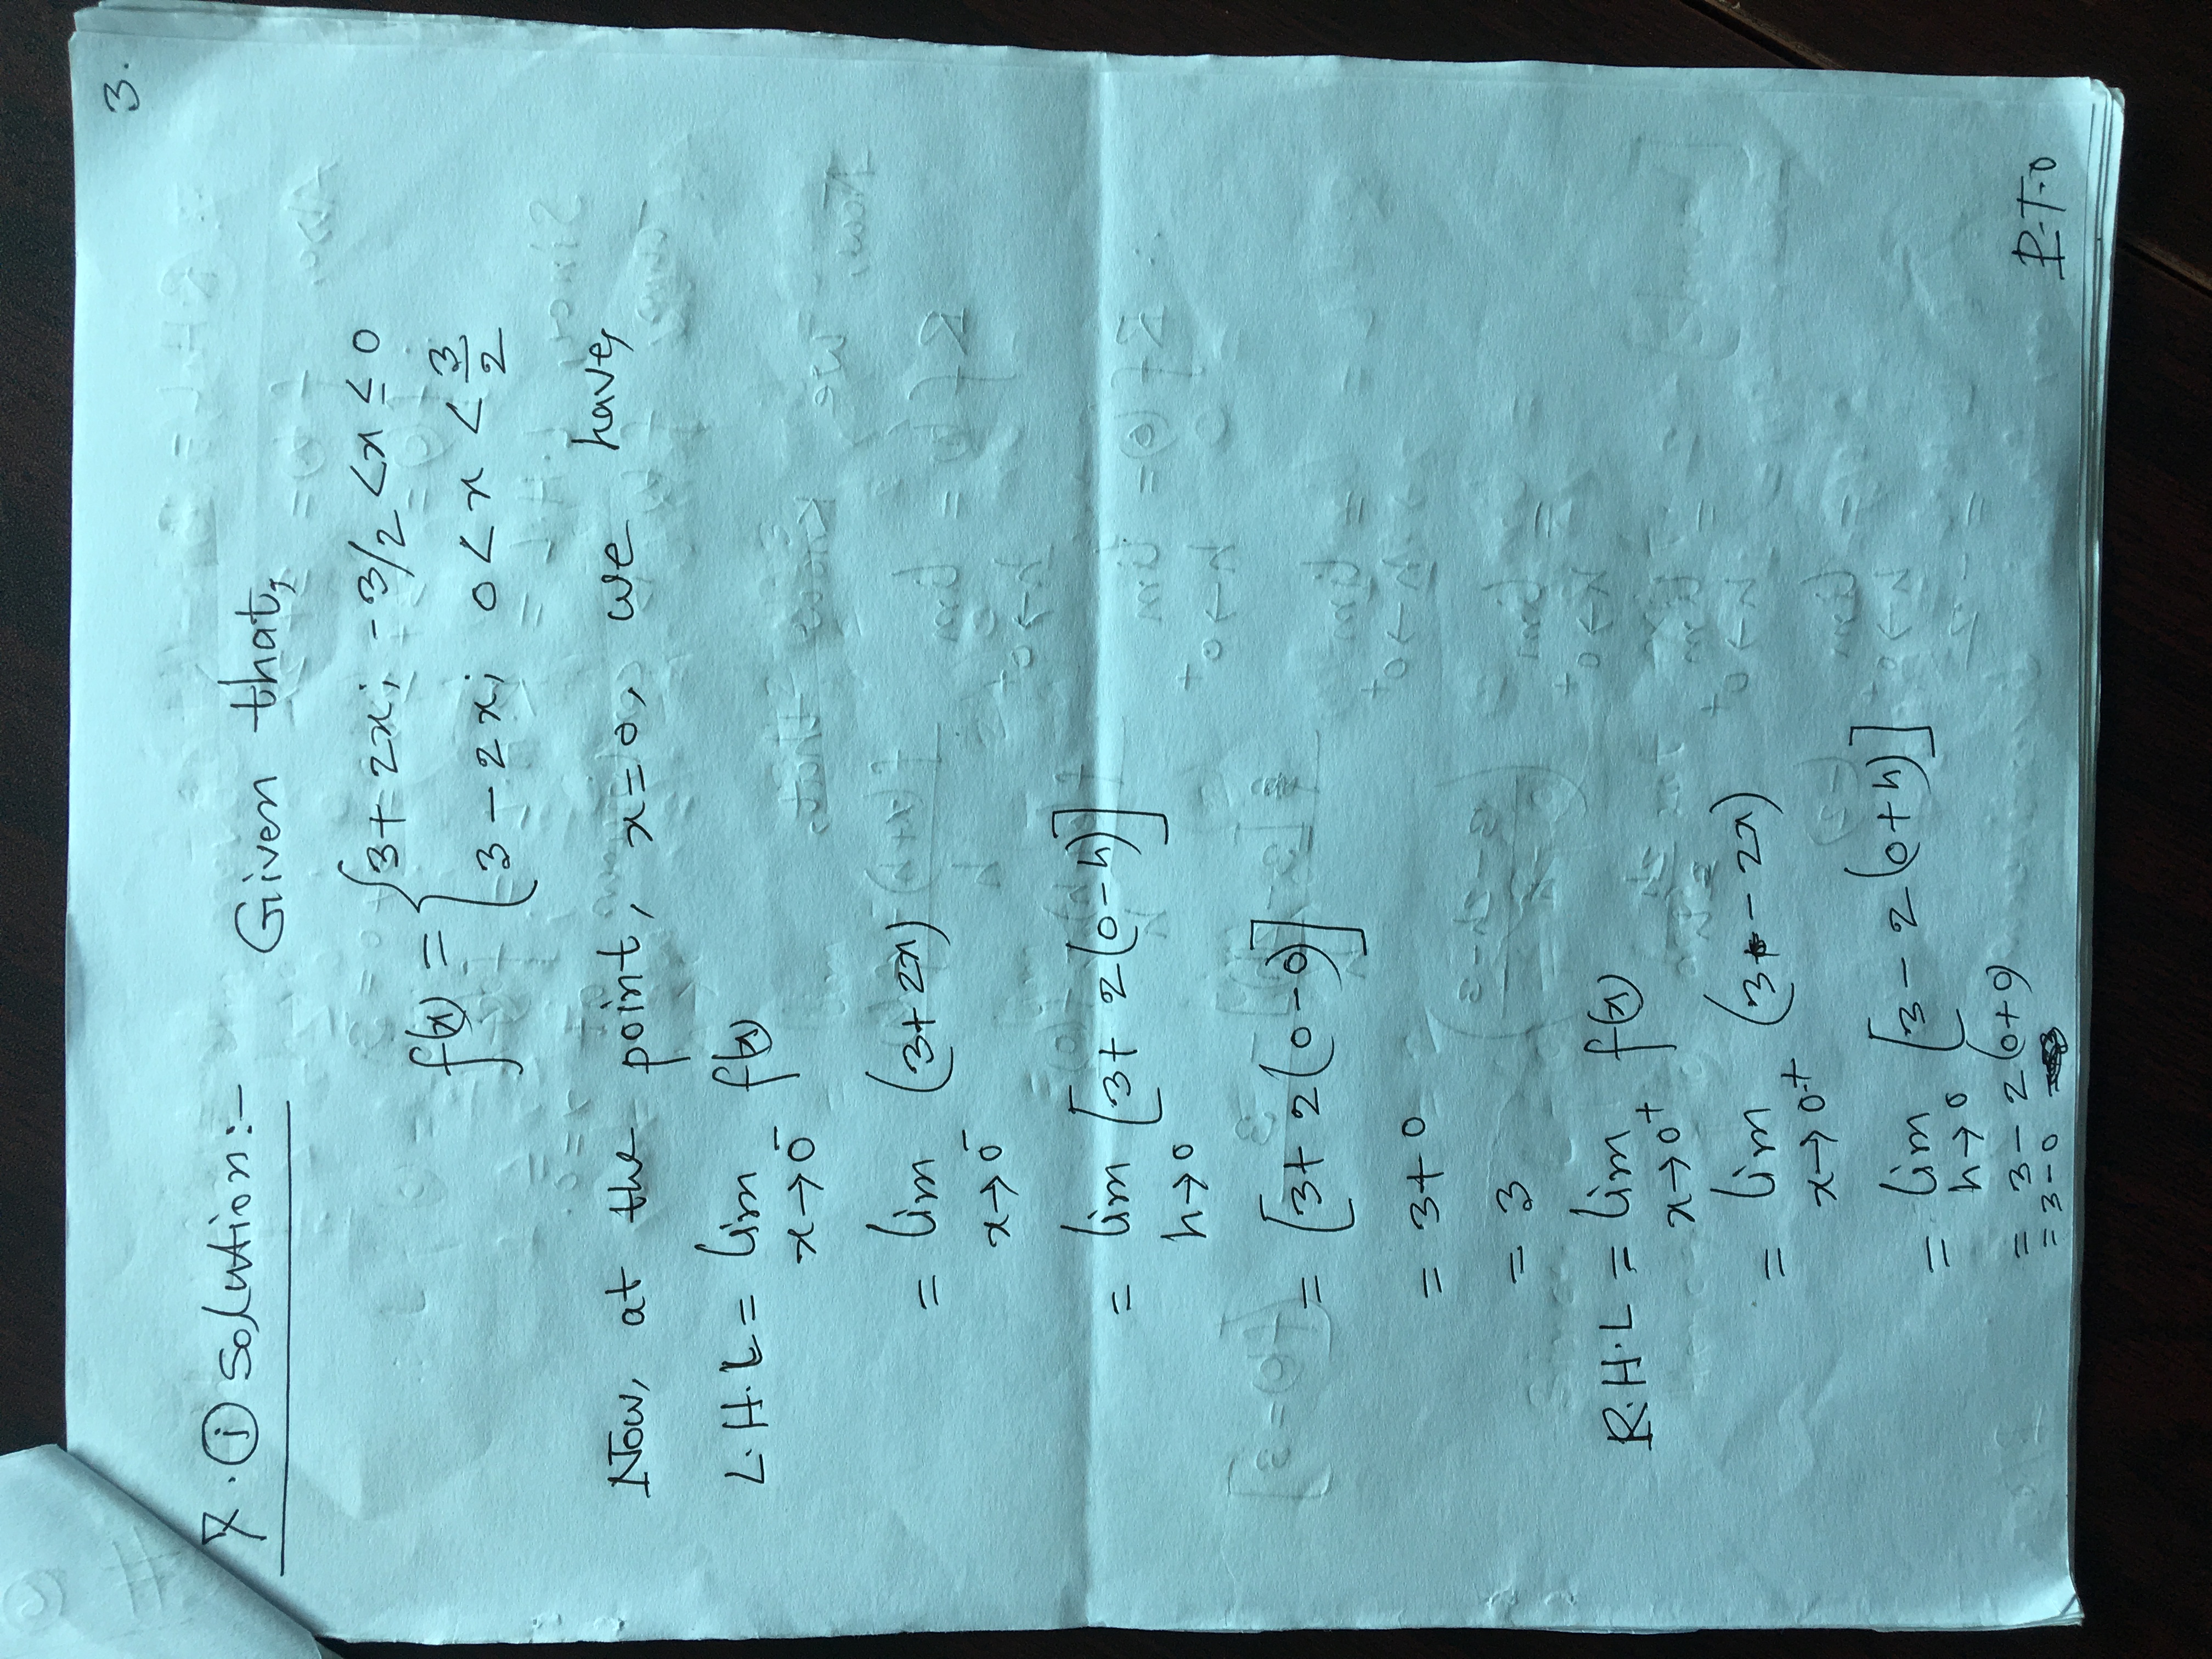 3.
7. (i) Solution:- Given that,
f(x) = { 3 + 2x; -3/2 < x ≤ 0
3 - 2x; 0 < x < 3/2
Now, at the point, x=0, we have,
L.H.L = lim f(x)
x→0⁻
= lim (3+2x)
x→0⁻
= lim [3+ 2(0-h)]
h→0
= [3+ 2(0-0)]
= 3+0
= 3
R.H.L = lim f(x)
x→0⁺
= lim (3 - 2x)
x→0⁺
= lim [3 - 2(0+h)]
h→0
= 3 - 2(0+0)
= 3-0
P.T.O